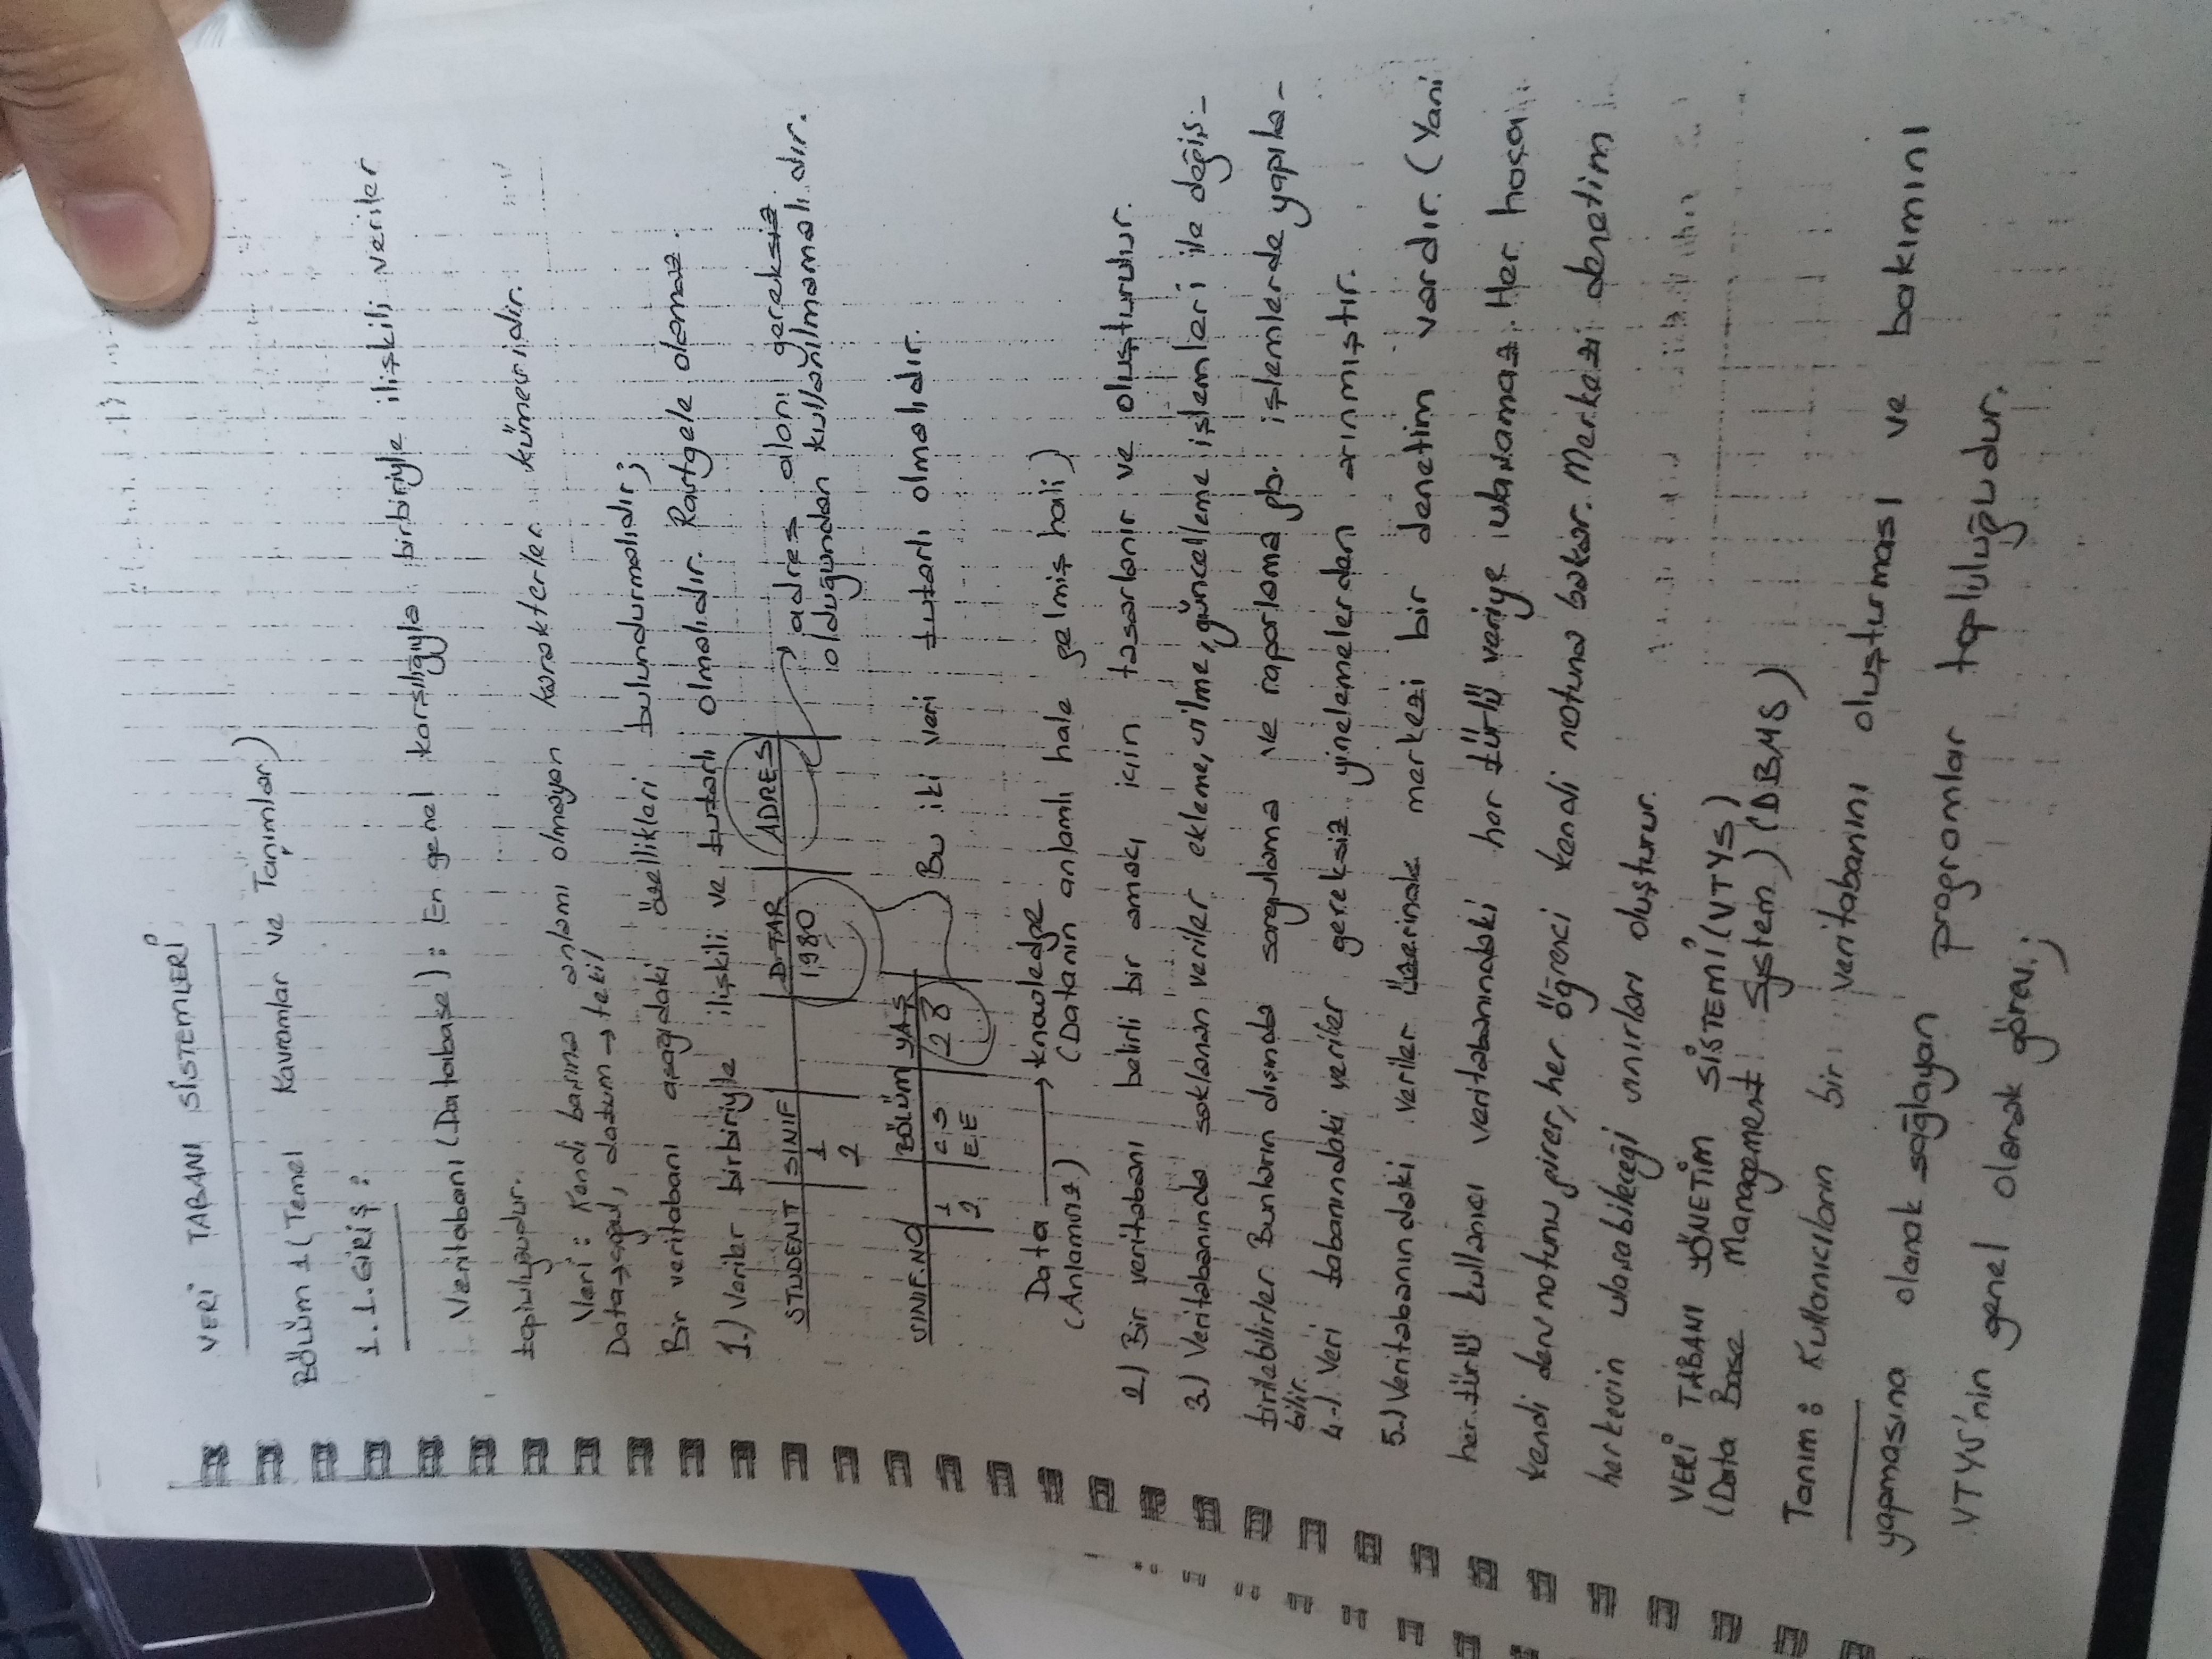 VERİ TABANI SİSTEMLERİ
BÖLÜM 1 (Temel Kavramlar ve Tanımlar)
1.1. GİRİŞ :
Veritabanı (Database) : En genel karşılığıyla birbiriyle ilişkili veriler
topluluğudur.
Veri : Kendi başına anlamı olmayan karakterler kümesidir.
Data → çoğul, datum → tekil
Bir veritabanı aşağıdaki özellikleri bulundurmalıdır ;
1.) Veriler birbiriyle ilişkili ve tutarlı olmalıdır. Rastgele olamaz.
STUDENT SINIF D.TAR ADRES
1 1980
2
adres alanı gereksiz
olduğundan kullanılmamalıdır.
SINIF.NO BÖLÜM YAŞ
1 CS 28
2 EE
Bu iki veri tutarlı olmalıdır.
Data → knowledge
(Anlamsız) (Datanın anlamlı hale gelmiş hali)
2) Bir veritabanı belirli bir amaç için tasarlanır ve oluşturulur.
3.) Veritabanında saklanan veriler ekleme, silme, güncelleme işlemleri ile değiş-
tirilebilirler. Bunların dışında sorgulama ve raporlama gb. işlemlerde yapıla-
bilir.
4-) Veri tabanındaki veriler gereksiz yinelemelerden arınmıştır.
5-) Veritabanındaki veriler üzerinde merkezi bir denetim vardır. (Yani
her türlü kullanıcı veritabanındaki her türlü veriye ulaşamaz. Her hoca
kendi ders notunu girer, her öğrenci kendi notuna bakar. Merkezi denetim
herkesin ulaşabileceği sınırları oluşturur.
VERİ TABANI YÖNETİM SİSTEMİ (VTYS)
(Data Base Management System) (DBMS)
Tanım : Kullanıcıların bir veritabanını oluşturması ve bakımını
yapmasına olanak sağlayan programlar topluluğudur.
VTYS'nin genel olarak görev. ;